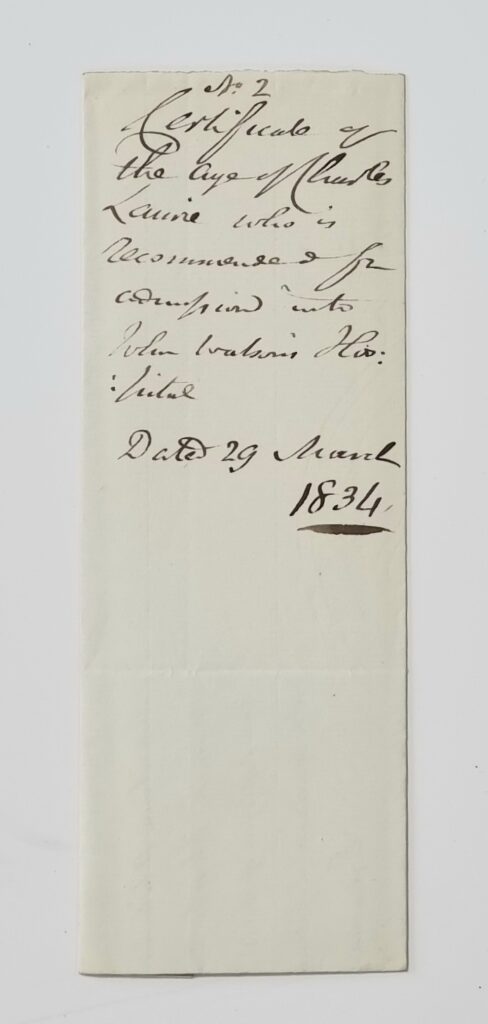 No. 2
Certificate of
the age of Charles
Laurie who is
recommended for
admission into
John Watson's Hos:
:pital
Dated 29 March
1834